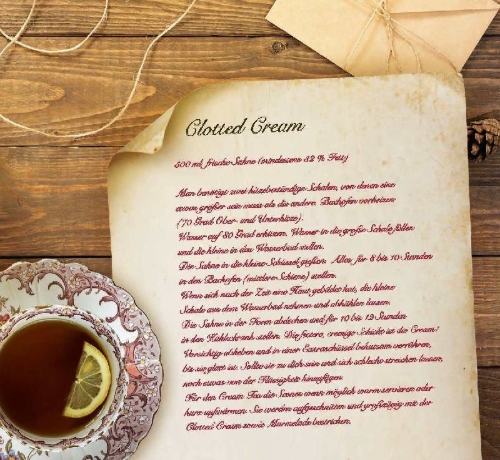 Clotted Cream
500 ml frische Sahne (mindestens 32 % Fett)
Man benötigt zwei hitzebeständige Schalen, von denen eine
etwas größer sein muss als die andere. Backofen vorheizen
(70 Grad Ober- und Unterhitze).
Wasser auf 80 Grad erhitzen. Wasser in die große Schale füllen
und die kleine in das Wasserbad stellen.
Die Sahne in die kleine Schüssel gießen. Alles für 8 bis 10 Stunden
in den Backofen (mittlere Schiene) stellen.
Wenn sich nach der Zeit eine Haut gebildet hat, die kleine
Schale aus dem Wasserbad nehmen und abkühlen lassen.
Die Sahne in der Form abdecken und für 10 bis 12 Stunden
in den Kühlschrank stellen. Die festere, cremige Schicht ist die Cream!
Vorsichtig abheben und in einer Extraschüssel behutsam verrühren,
bis sie glatt ist. Sollte sie zu dick sein und sich schlecht streichen lassen,
noch etwas von der Flüssigkeit hinzufügen.
Für den Cream Tea die Scones wenn möglich warm servieren oder
kurz aufwärmen. Sie werden aufgeschnitten und großzügig mit der
Clotted Cream sowie Marmelade bestrichen.